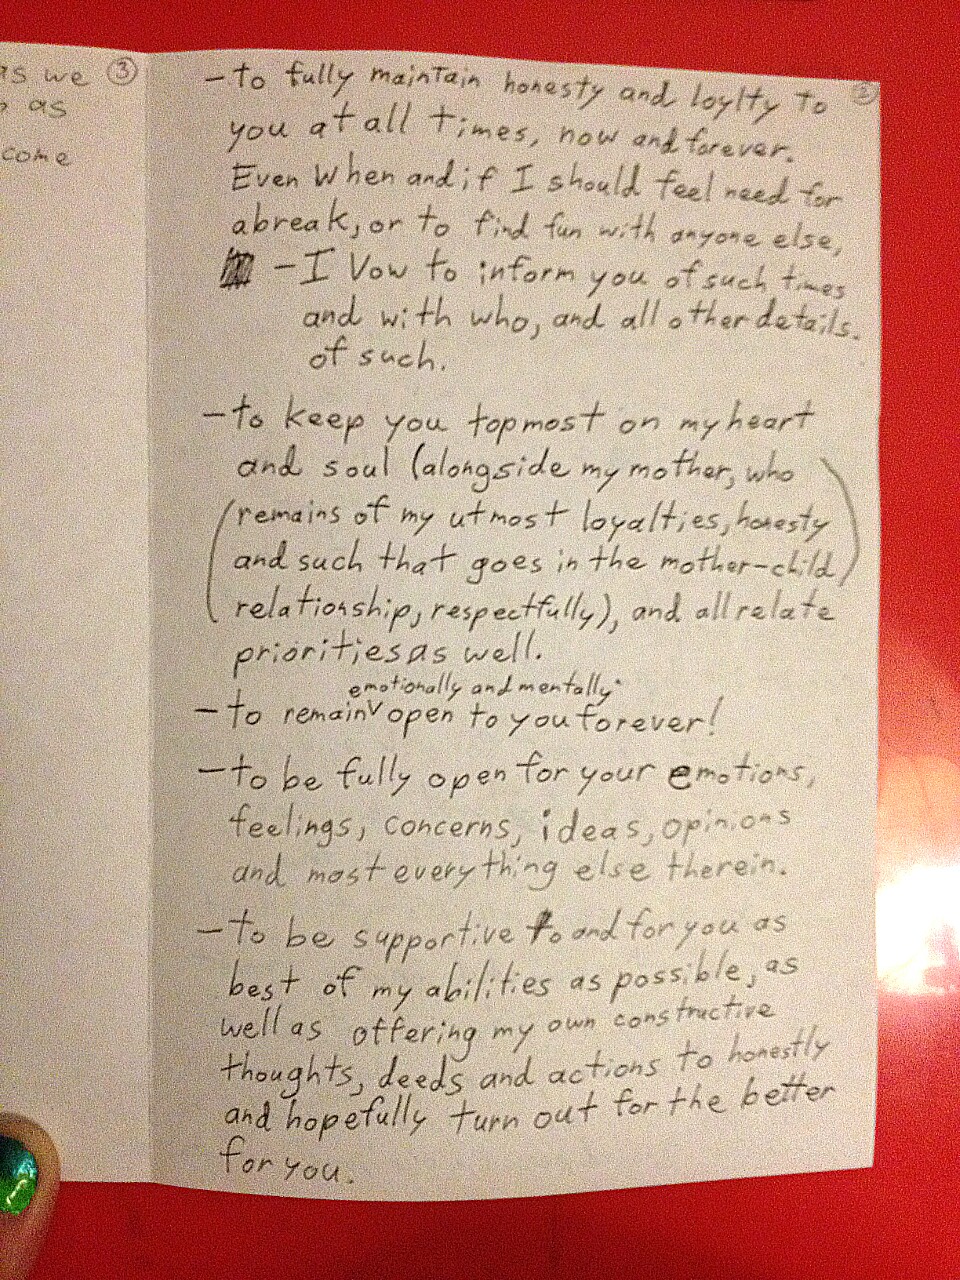 as we ③
as
come
②
- to fully maintain honesty and loylty to
you at all times, now and forever.
Even When and if I should feel need for
a break, or to find fun with anyone else,
- I Vow to inform you of such times
and with who, and all other details.
of such.
- to keep you topmost on my heart
and soul (alongside my mother, who
(remains of my utmost loyalties, honesty
and such that goes in the mother-child)
relationship, respectfully), and all relate
priorities as well.
emotionally and mentally
- to remain v open to you forever!
- to be fully open for your emotions,
feelings, concerns, ideas, opinions
and most everything else therein.
- to be supportive to and for you as
best of my abilities as possible, as
well as offering my own constructive
thoughts, deeds and actions to honestly
and hopefully turn out for the better
for you.